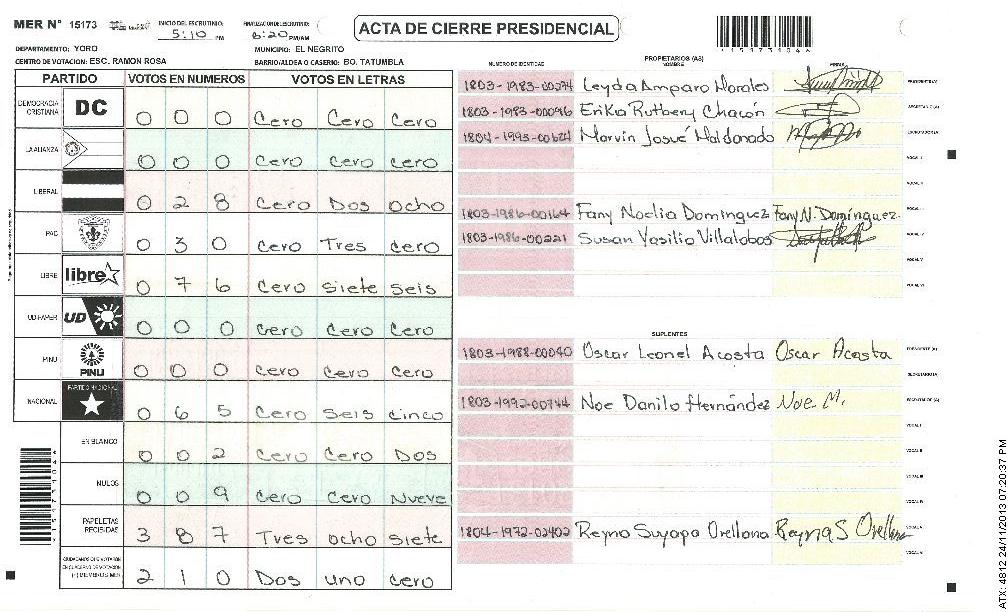 MER N° 15173
INICIO DEL ESCRUTINIO: 5:10 PM
FINALIZACION ESCRUTINIO: 6:20 PM/AM
ACTA DE CIERRE PRESIDENCIAL
15173104
DEPARTAMENTO: YORO
MUNICIPIO: EL NEGRITO
CENTRO DE VOTACION: ESC. RAMON ROSA
BARRIO/ALDEA O CASERIO: BO. TATUMBLA
PARTIDO VOTOS EN NUMEROS VOTOS EN LETRAS
DEMOCRACIA CRISTIANA DC 0 0 0 Cero Cero Cero
LA ALIANZA 0 0 0 Cero Cero Cero
LIBERAL 0 2 8 Cero Dos Ocho
PAC 0 3 0 Cero Tres Cero
LIBRE libre 0 7 6 Cero Siete Seis
UD FAPER UD 0 0 0 Cero Cero Cero
PINU PINU 0 0 0 Cero Cero Cero
NACIONAL PARTIDO NACIONAL 0 6 5 Cero Seis Cinco
EN BLANCO 0 0 2 Cero Cero Dos
NULOS 0 0 9 Cero Cero Nueve
PAPELETAS RECIBIDAS 3 8 7 Tres Ocho Siete
CIUDADANOS QUE VOTARON EN CUADERNO DE VOTACION (+) MIEMBROS MER 2 1 0 Dos uno Cero
NUMERO DE IDENTIDAD PROPIETARIOS (AS) NOMBRE FIRMA
1803-1983-00274 Leyda Amparo Morales PRESIDENTE (A)
1803-1983-00096 Erika Rutbery Chacón SECRETARIO (A)
1804-1995-00624 Marvin Josué Maldonado ESCRUTADOR (A)
VOCAL I
VOCAL II
1803-1986-00164 Fany Noelia Dominguez Fany N. Domínguez. VOCAL III
1803-1986-00221 Susan Yasilia Villalobos VOCAL IV
VOCAL V
VOCAL VI
SUPLENTES
1803-1988-00040 Oscar Leonel Acosta Oscar Acosta PRESIDENTE (A)
SECRETARIO (A)
1803-1992-00744 Noe Danilo Hernández Noe. M. ESCRUTADOR (A)
VOCAL I
VOCAL II
VOCAL III
VOCAL IV
1804-1972-02402 Reyna Suyapa Orellana Reyna S Orellana VOCAL V
VOCAL VI
ATX: 4812 24/11/2013 07:20:37 PM